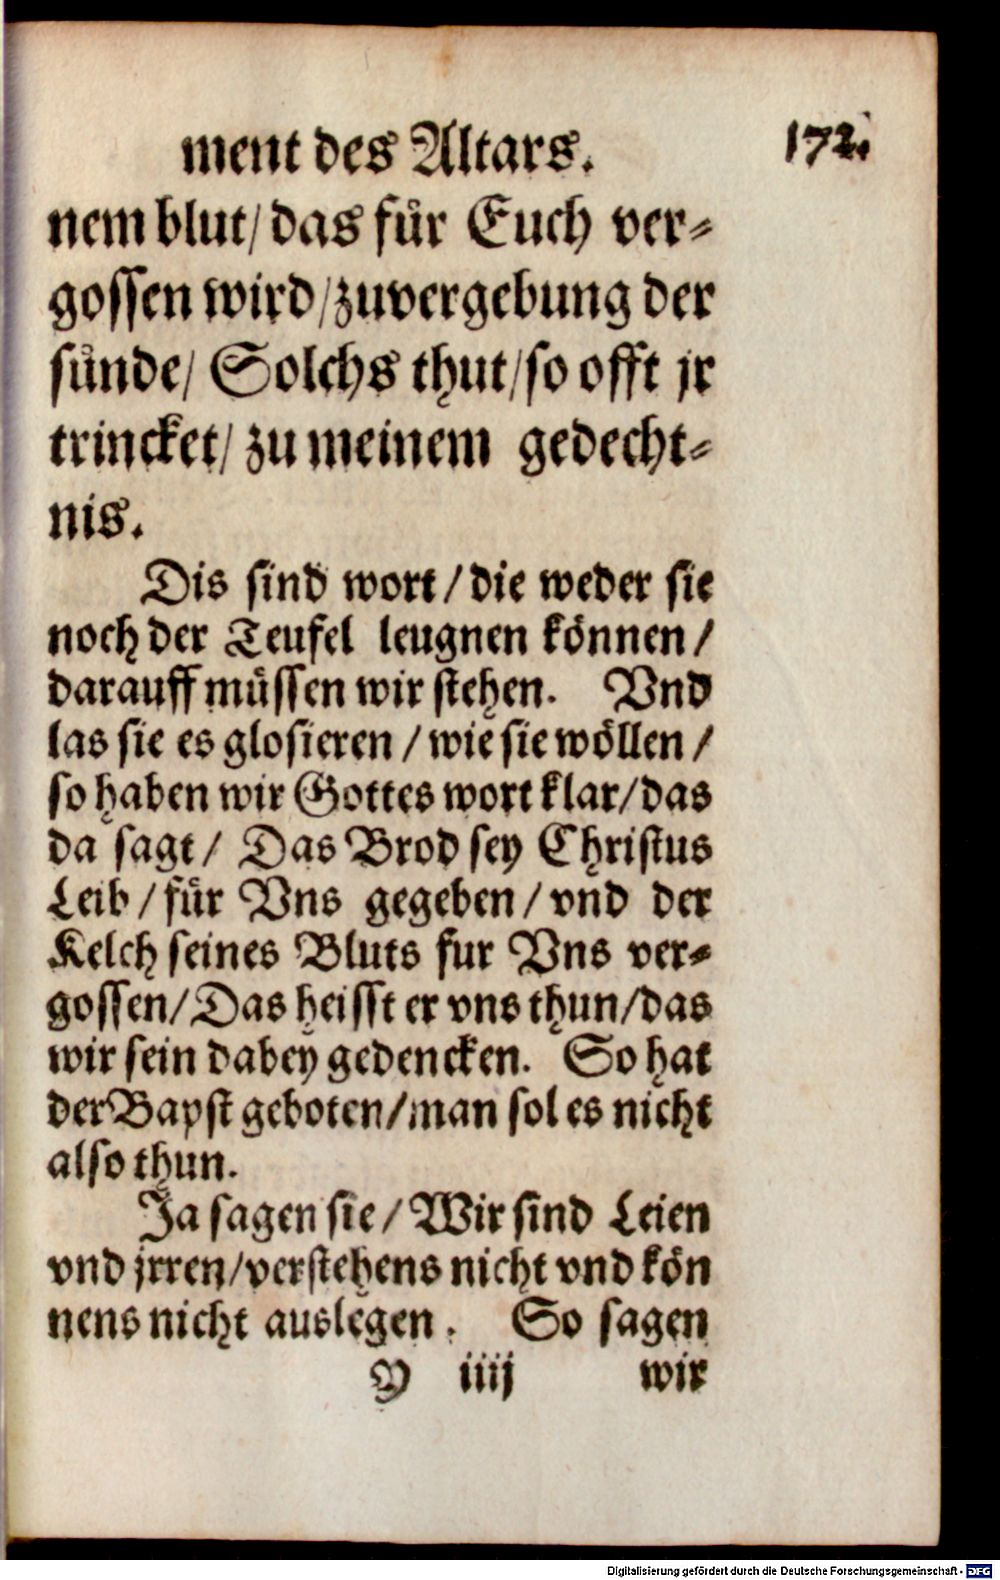 ment des Altars. 172.
nem blut/ das für Euch ver-
gossen wird/ zuvergebung der
sünde/ Solchs thut/ so offt jr
trincket/ zu meinem gedecht-
nis.
Dis sind wort/ die weder sie
noch der Teufel leugnen können/
darauff müssen wir stehen. Vnd
las sie es glosieren/ wie sie wöllen/
so haben wir Gottes wort klar/ das
da sagt/ Das Brod sey Christus
Leib/ für Vns gegeben/ vnd der
Kelch seines Bluts fur Vns ver-
gossen/ Das heisst er vns thun/ das
wir sein dabey gedencken. So hat
der Bapst geboten/ man sol es nicht
also thun.
Ja sagen sie/ Wir sind Leien
vnd jrren/ verstehens nicht vnd kön
nens nicht auslegen. So sagen
Y iiij wir
Digitalisierung gefördert durch die Deutsche Forschungsgemeinschaft - DFG